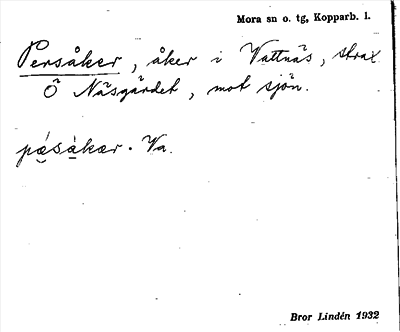 Mora sn o. tg, Kopparb. l.
Persåker, åker i Vattnäs, strax
Ö Näsgärdet, mot sjön.
pǽ̣sàkær. Va.
Bror Lindén 1932